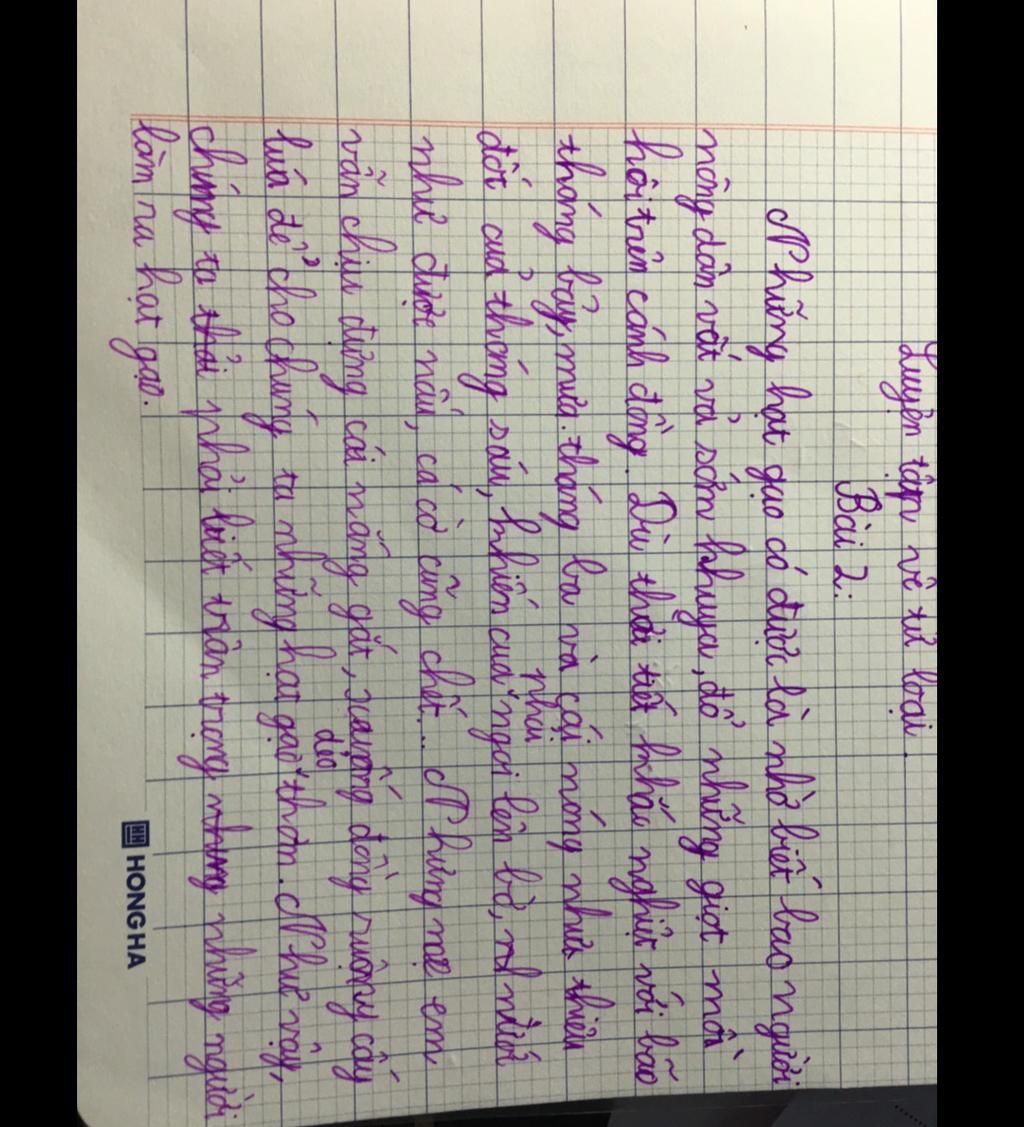 Luyện tập về từ loại.
Bài 2:
Những hạt gạo có được là nhờ biết bao người
nông dân vất vả sớm khuya, đổ những giọt mồ
hôi trên cánh đồng. Dù thời tiết khắc nghiệt với bão
tháng bảy, mưa tháng ba và cái nóng như thiêu
đốt của tháng sáu, khiến cua ngoi lên bờ, nước
như
như được nấu, cá cờ cũng chết... Nhưng mẹ em
vẫn chịu đựng cái nắng gắt, xuống đồng ruộng cấy
lúa để cho chúng ta những hạt gạo dẻo thơm. Như vậy,
chúng ta phải biết trân trọng những người
làm ra hạt gạo.
HONG HA